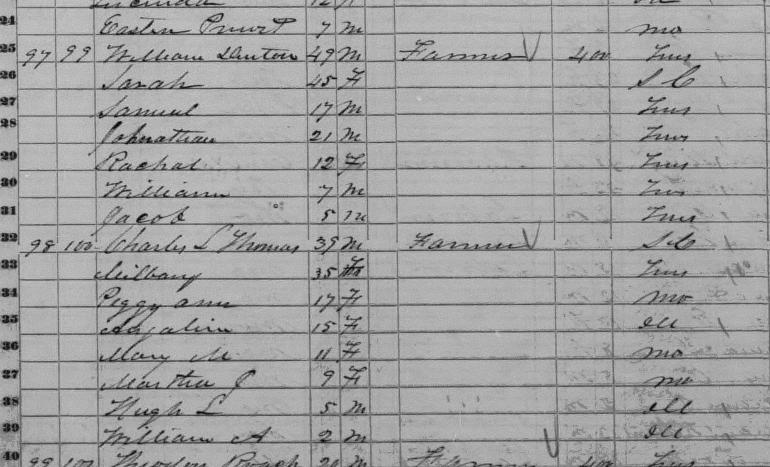 Lucinda 12 F
24 Easter Pruvet 7 M Mo
25 97 99 William Denton 49 M Farmer 400 Tens
26 Sarah 45 F S C
27 Samuel 17 M Tens
28 Johnathan 21 M Tens
29 Rachal 12 F Tens
30 William 7 M Tens
31 Jacob 5 M Tens
32 98 100 Charles L Thomas 39 M Farmer S C
33 Milbary 35 F Tens
34 Peggy ann 17 F Mo
35 Anjaline 15 F Ill
36 Mary M 11 F Mo
37 Martha J 9 F Mo
38 Hugh L 5 M Ill
39 William A 2 M Ill
40 99 101 Theodore Roach M Farmer 400 Tens